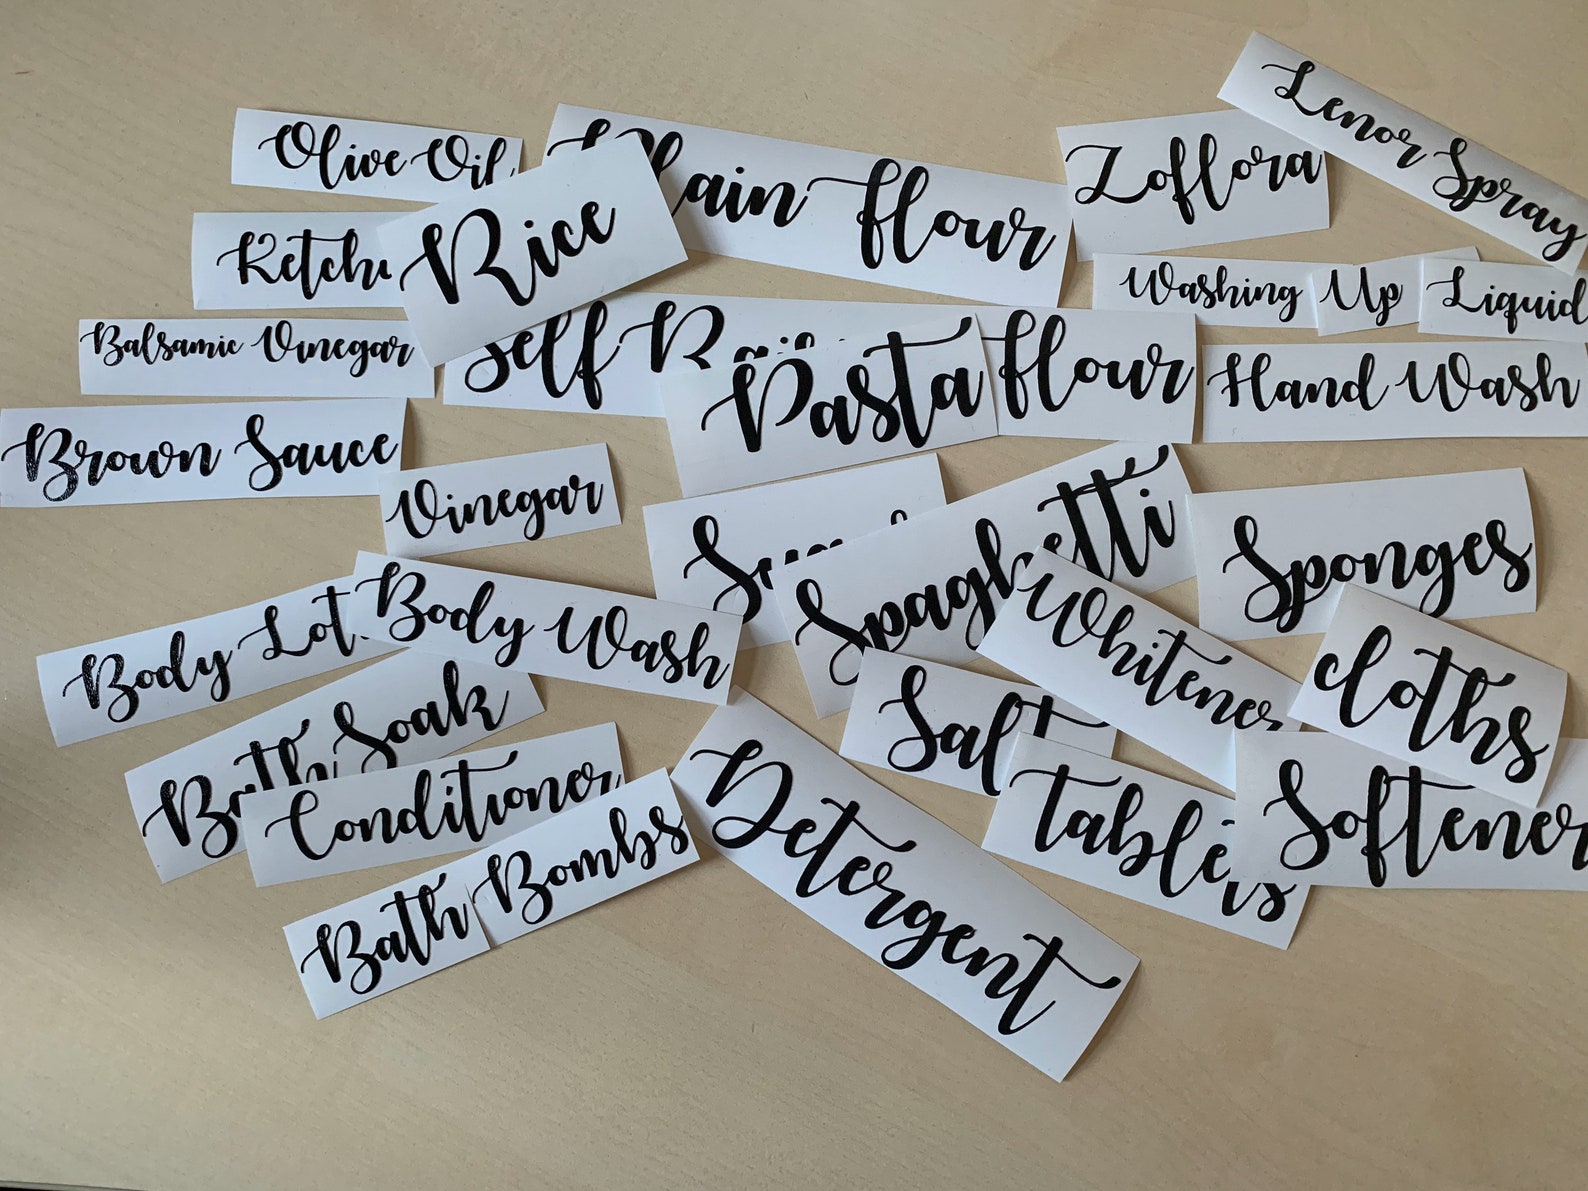 Lenor Spray
Olive Oil
Plain flour
Zoflora
Rice
Ketchu
Washing Up Liquid
Balsamic Vinegar
Self Rais flour
Pasta
Hand Wash
Brown Sauce
Vinegar
Suga
Spaghetti
Sponges
Body Lot
Body Wash
Whitener
cloths
Bath Soak
Salt
Conditioner
tablets
Softener
Detergent
Bath Bombs